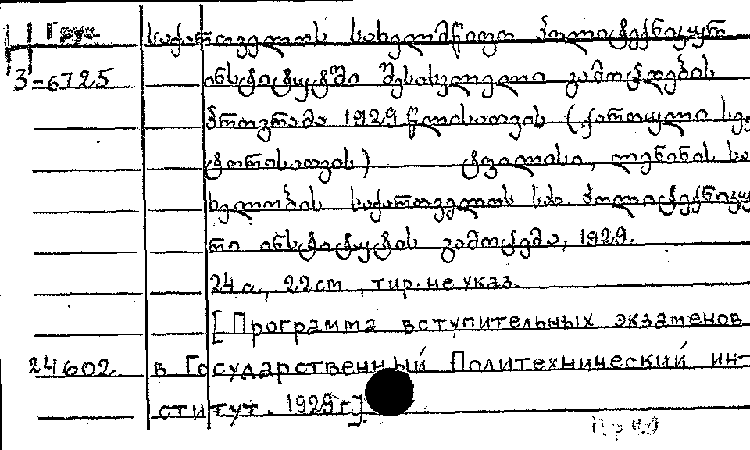 Груз. საქართველოს სახელმწიფო პოლიტექნიკურ
3-6725 ინსტიტუტში შესასვლელი გამოცდების
პროგრამა 1929 წლისათვის (ქართული სექ
ტორისათვის) ტფილისი, ლენინის სა
ხელობის საქართველოს სახ. პოლიტექნიკუ
რი ინსტიტუტის გამოცემა, 1929.
24 с., 22 cm, тир. не указ.
[Программа вступительных экзаменов
24602. в Государственный Политехнический ин-
ститут. 1929 г].